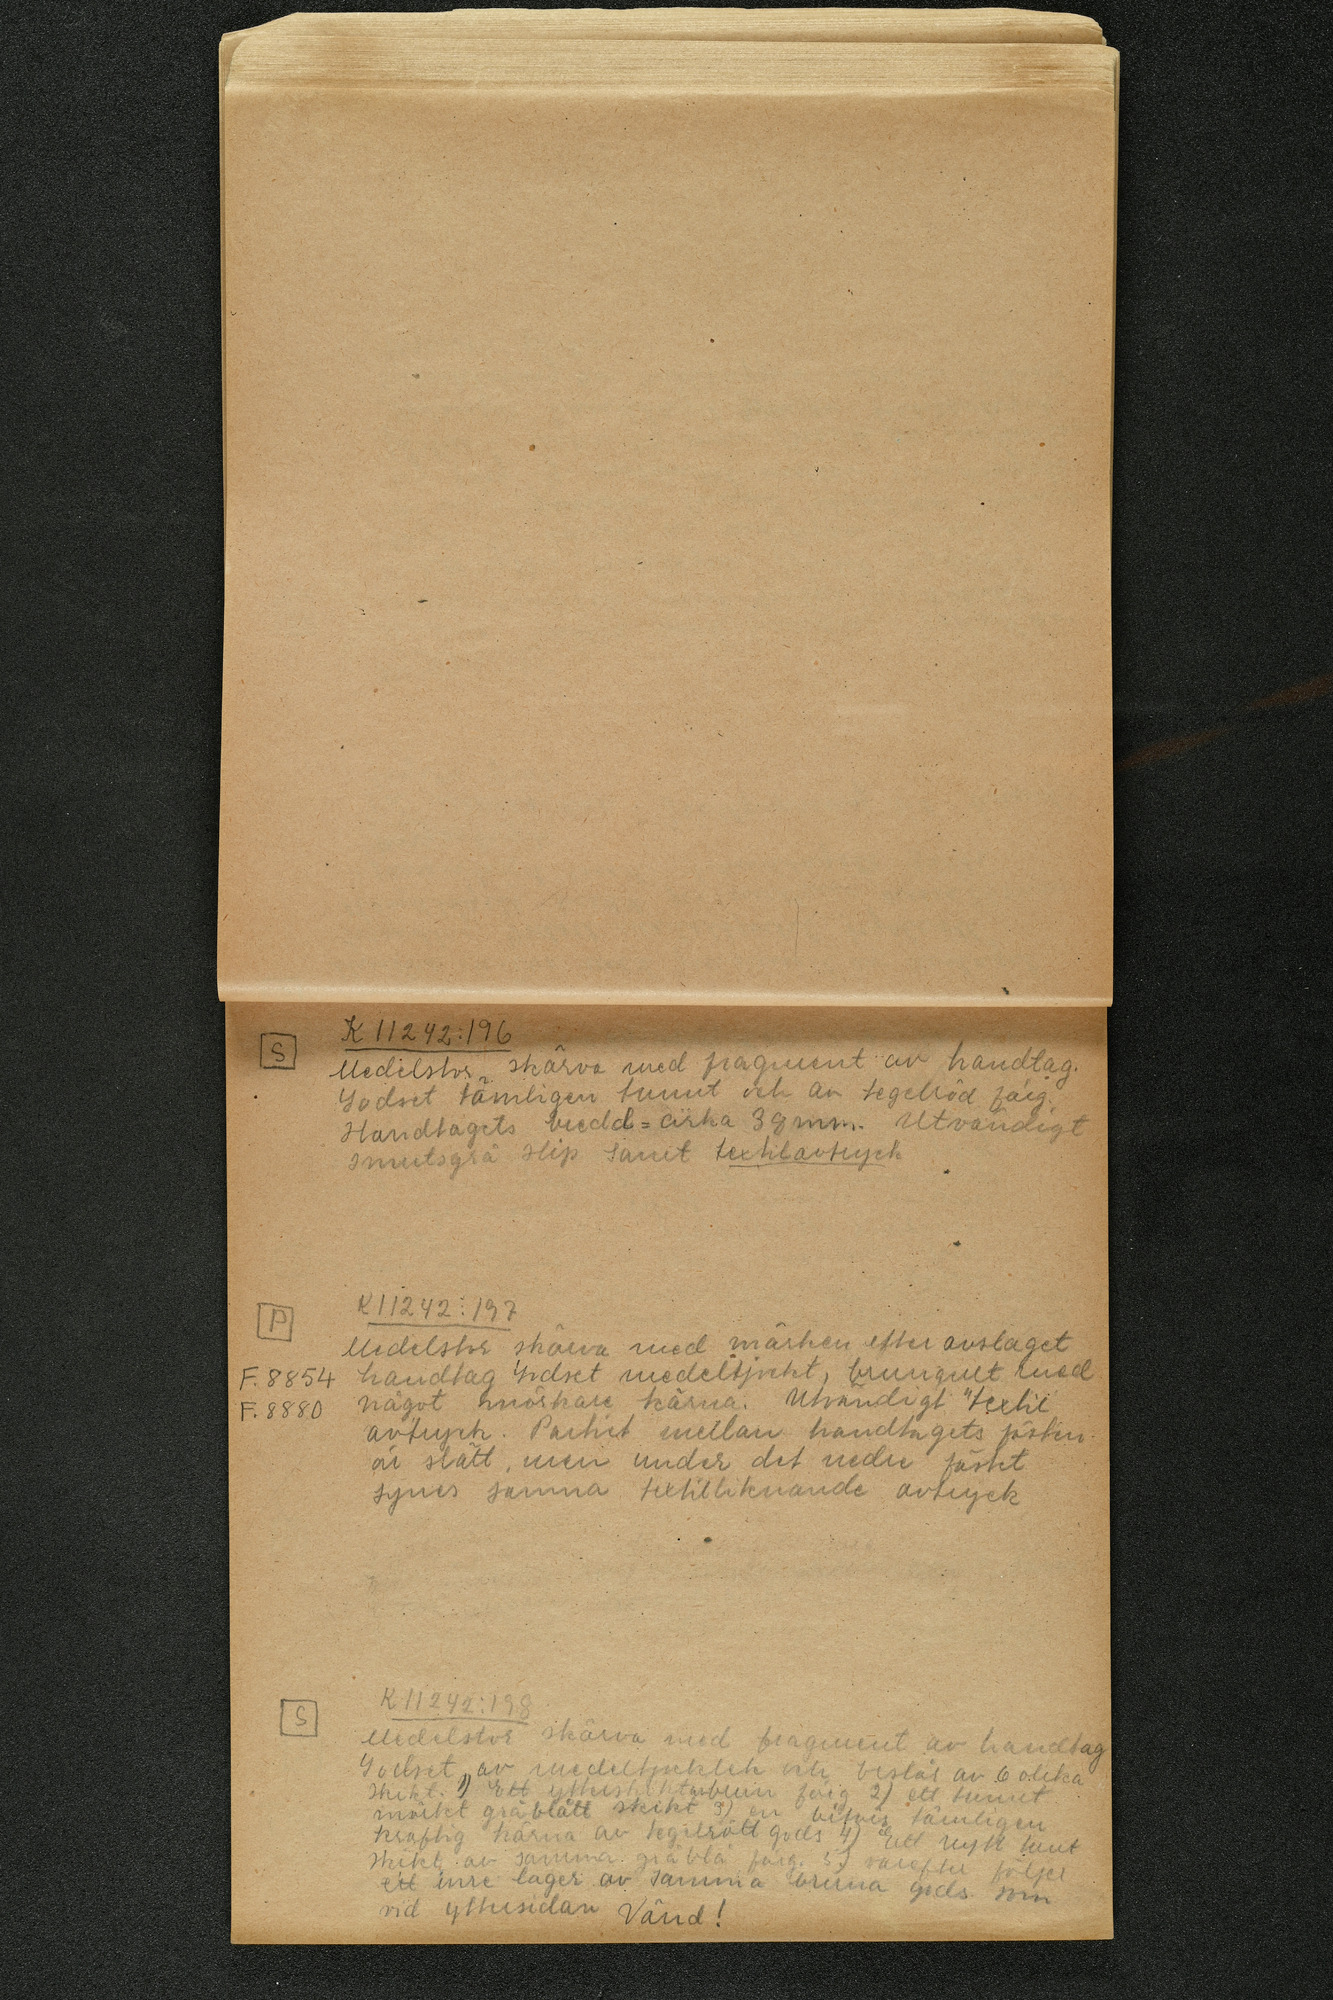 S K 11242:196
Medelstor skärva med fragment av handtag.
Godset tämligen tunnt och av tegelröd färg.
Handtagets bredd = cirka 38 mm. Utvändigt
smutsgrå slip samt textilavtryck
P K 11242:197
Medelstor skärva med märken efter avslaget
F. 8854 handtag Godset medeltjockt, brungult med
F. 8880 något mörkare kärna. Utvändigt "textil
avtryck. Partiet mellan handtagets fästen
är slätt, men under det nedre fästet
synes samma textilliknande avtryck
S K 11242:198
Medelstor skärva med fragment av handtag
Godset av medeltjocklek och består av 6 olika
skikt. 1) Ett ytterskikt brun färg 2) ett tunnt
mörkt gråblått skikt 3) en bitvis tämligen
kraftig kärna av tegelrött gods 4) ett nytt tunt
skikt av samma gråblå färg. 5) varefter följer
ett inre lager av samma bruna gods som
vid yttersidan Vänd!